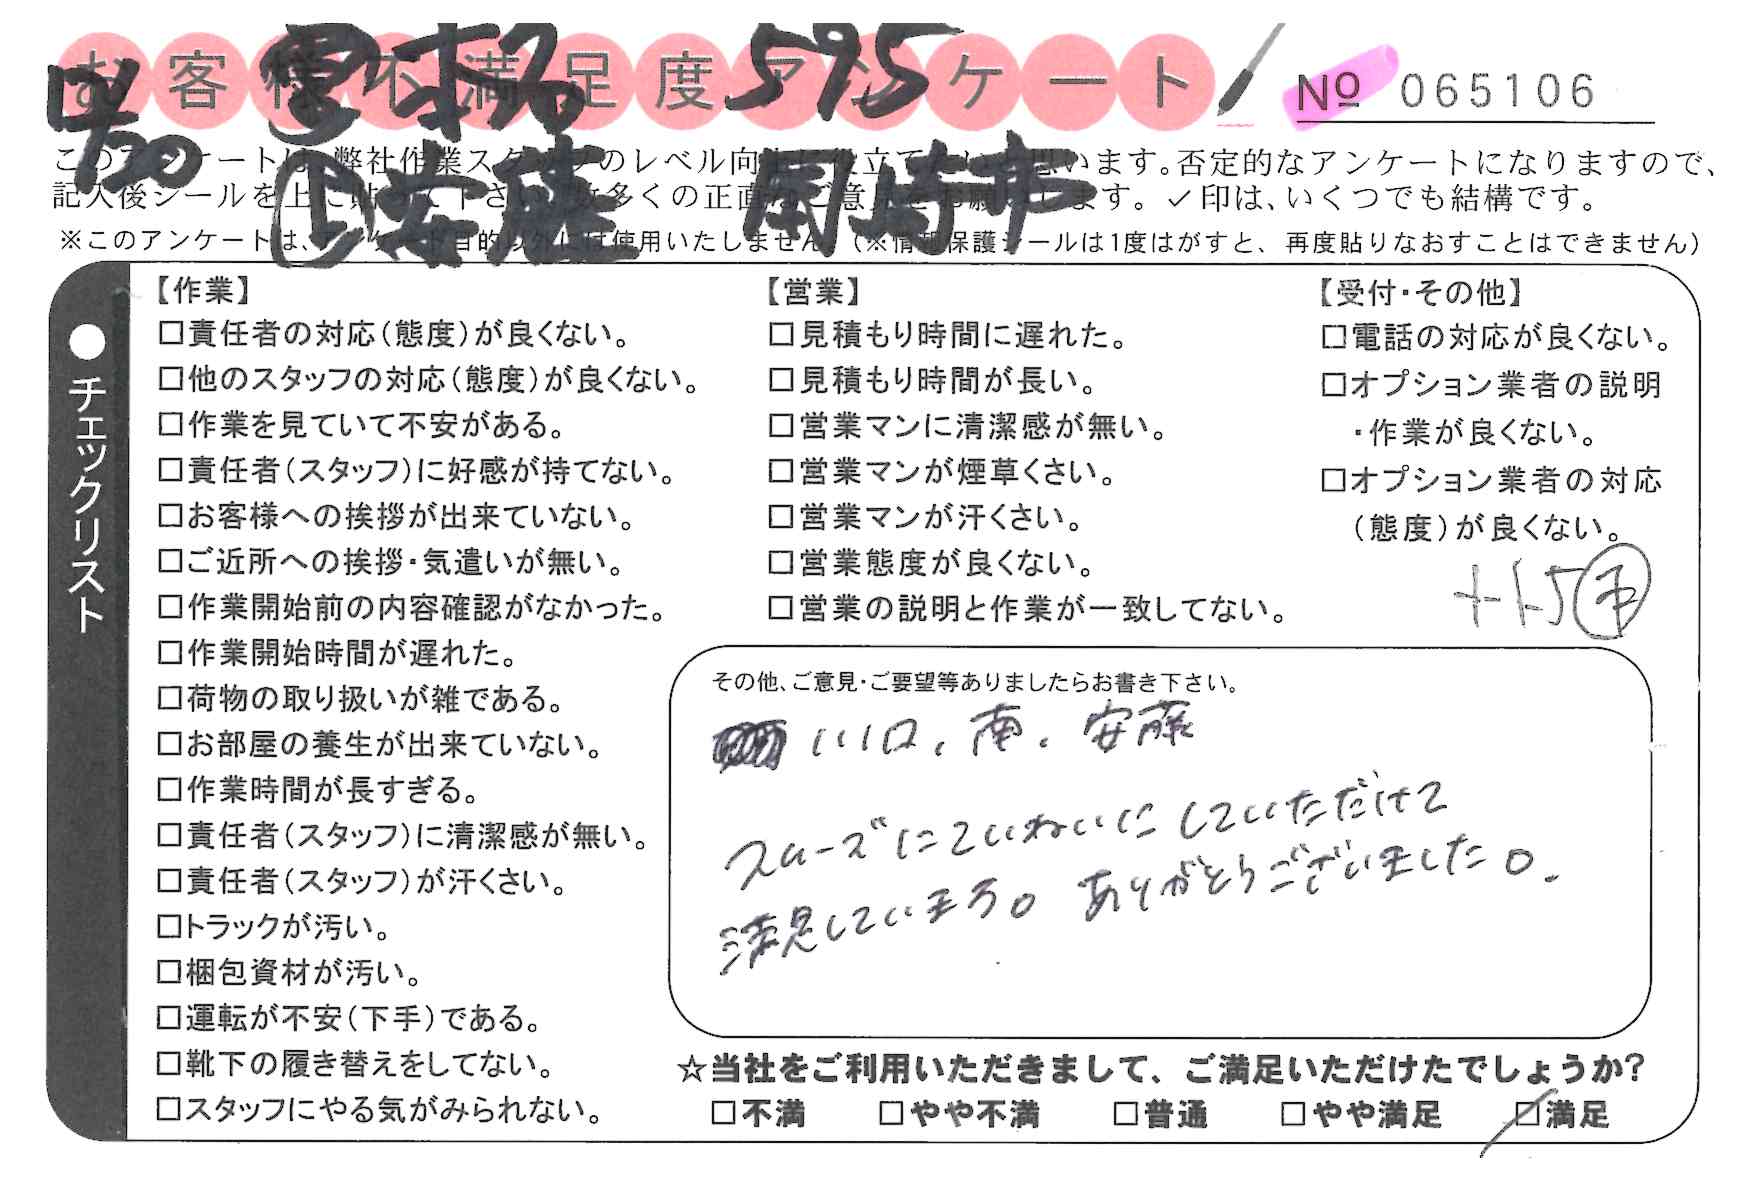 お客様不満足度アンケート No 065106
12/20 595
安藤 岡崎市
このアンケートは、弊社作業スタッフのレベル向上に役立てたいと思います。否定的なアンケートになりますので、
記入後シールを上に貼って下さい。数多くの正直なご意見をお願いします。✓印は、いくつでも結構です。
※このアンケートは、アンケート目的以外には使用いたしません。(※情報保護シールは1度はがすと、再度貼りなおすことはできません)
●チェックリスト
【作業】
□責任者の対応(態度)が良くない。
□他のスタッフの対応(態度)が良くない。
□作業を見ていて不安がある。
□責任者(スタッフ)に好感が持てない。
□お客様への挨拶が出来ていない。
□ご近所への挨拶・気遣いが無い。
□作業開始前の内容確認がなかった。
□作業開始時間が遅れた。
□荷物の取り扱いが雑である。
□お部屋の養生が出来ていない。
□作業時間が長すぎる。
□責任者(スタッフ)に清潔感が無い。
□責任者(スタッフ)が汗くさい。
□トラックが汚い。
□梱包資材が汚い。
□運転が不安(下手)である。
□靴下の履き替えをしてない。
□スタッフにやる気がみられない。
【営業】
□見積もり時間に遅れた。
□見積もり時間が長い。
□営業マンに清潔感が無い。
□営業マンが煙草くさい。
□営業マンが汗くさい。
□営業態度が良くない。
□営業の説明と作業が一致してない。
【受付・その他】
□電話の対応が良くない。
□オプション業者の説明
・作業が良くない。
□オプション業者の対応
(態度)が良くない。
その他、ご意見・ご要望等ありましたらお書き下さい。
川口、南、安藤
スムーズにていねいにしていただけて
満足しています。ありがとうございました。
☆当社をご利用いただきまして、ご満足いただけたでしょうか?
□不満 □やや不満 □普通 □やや満足 □満足